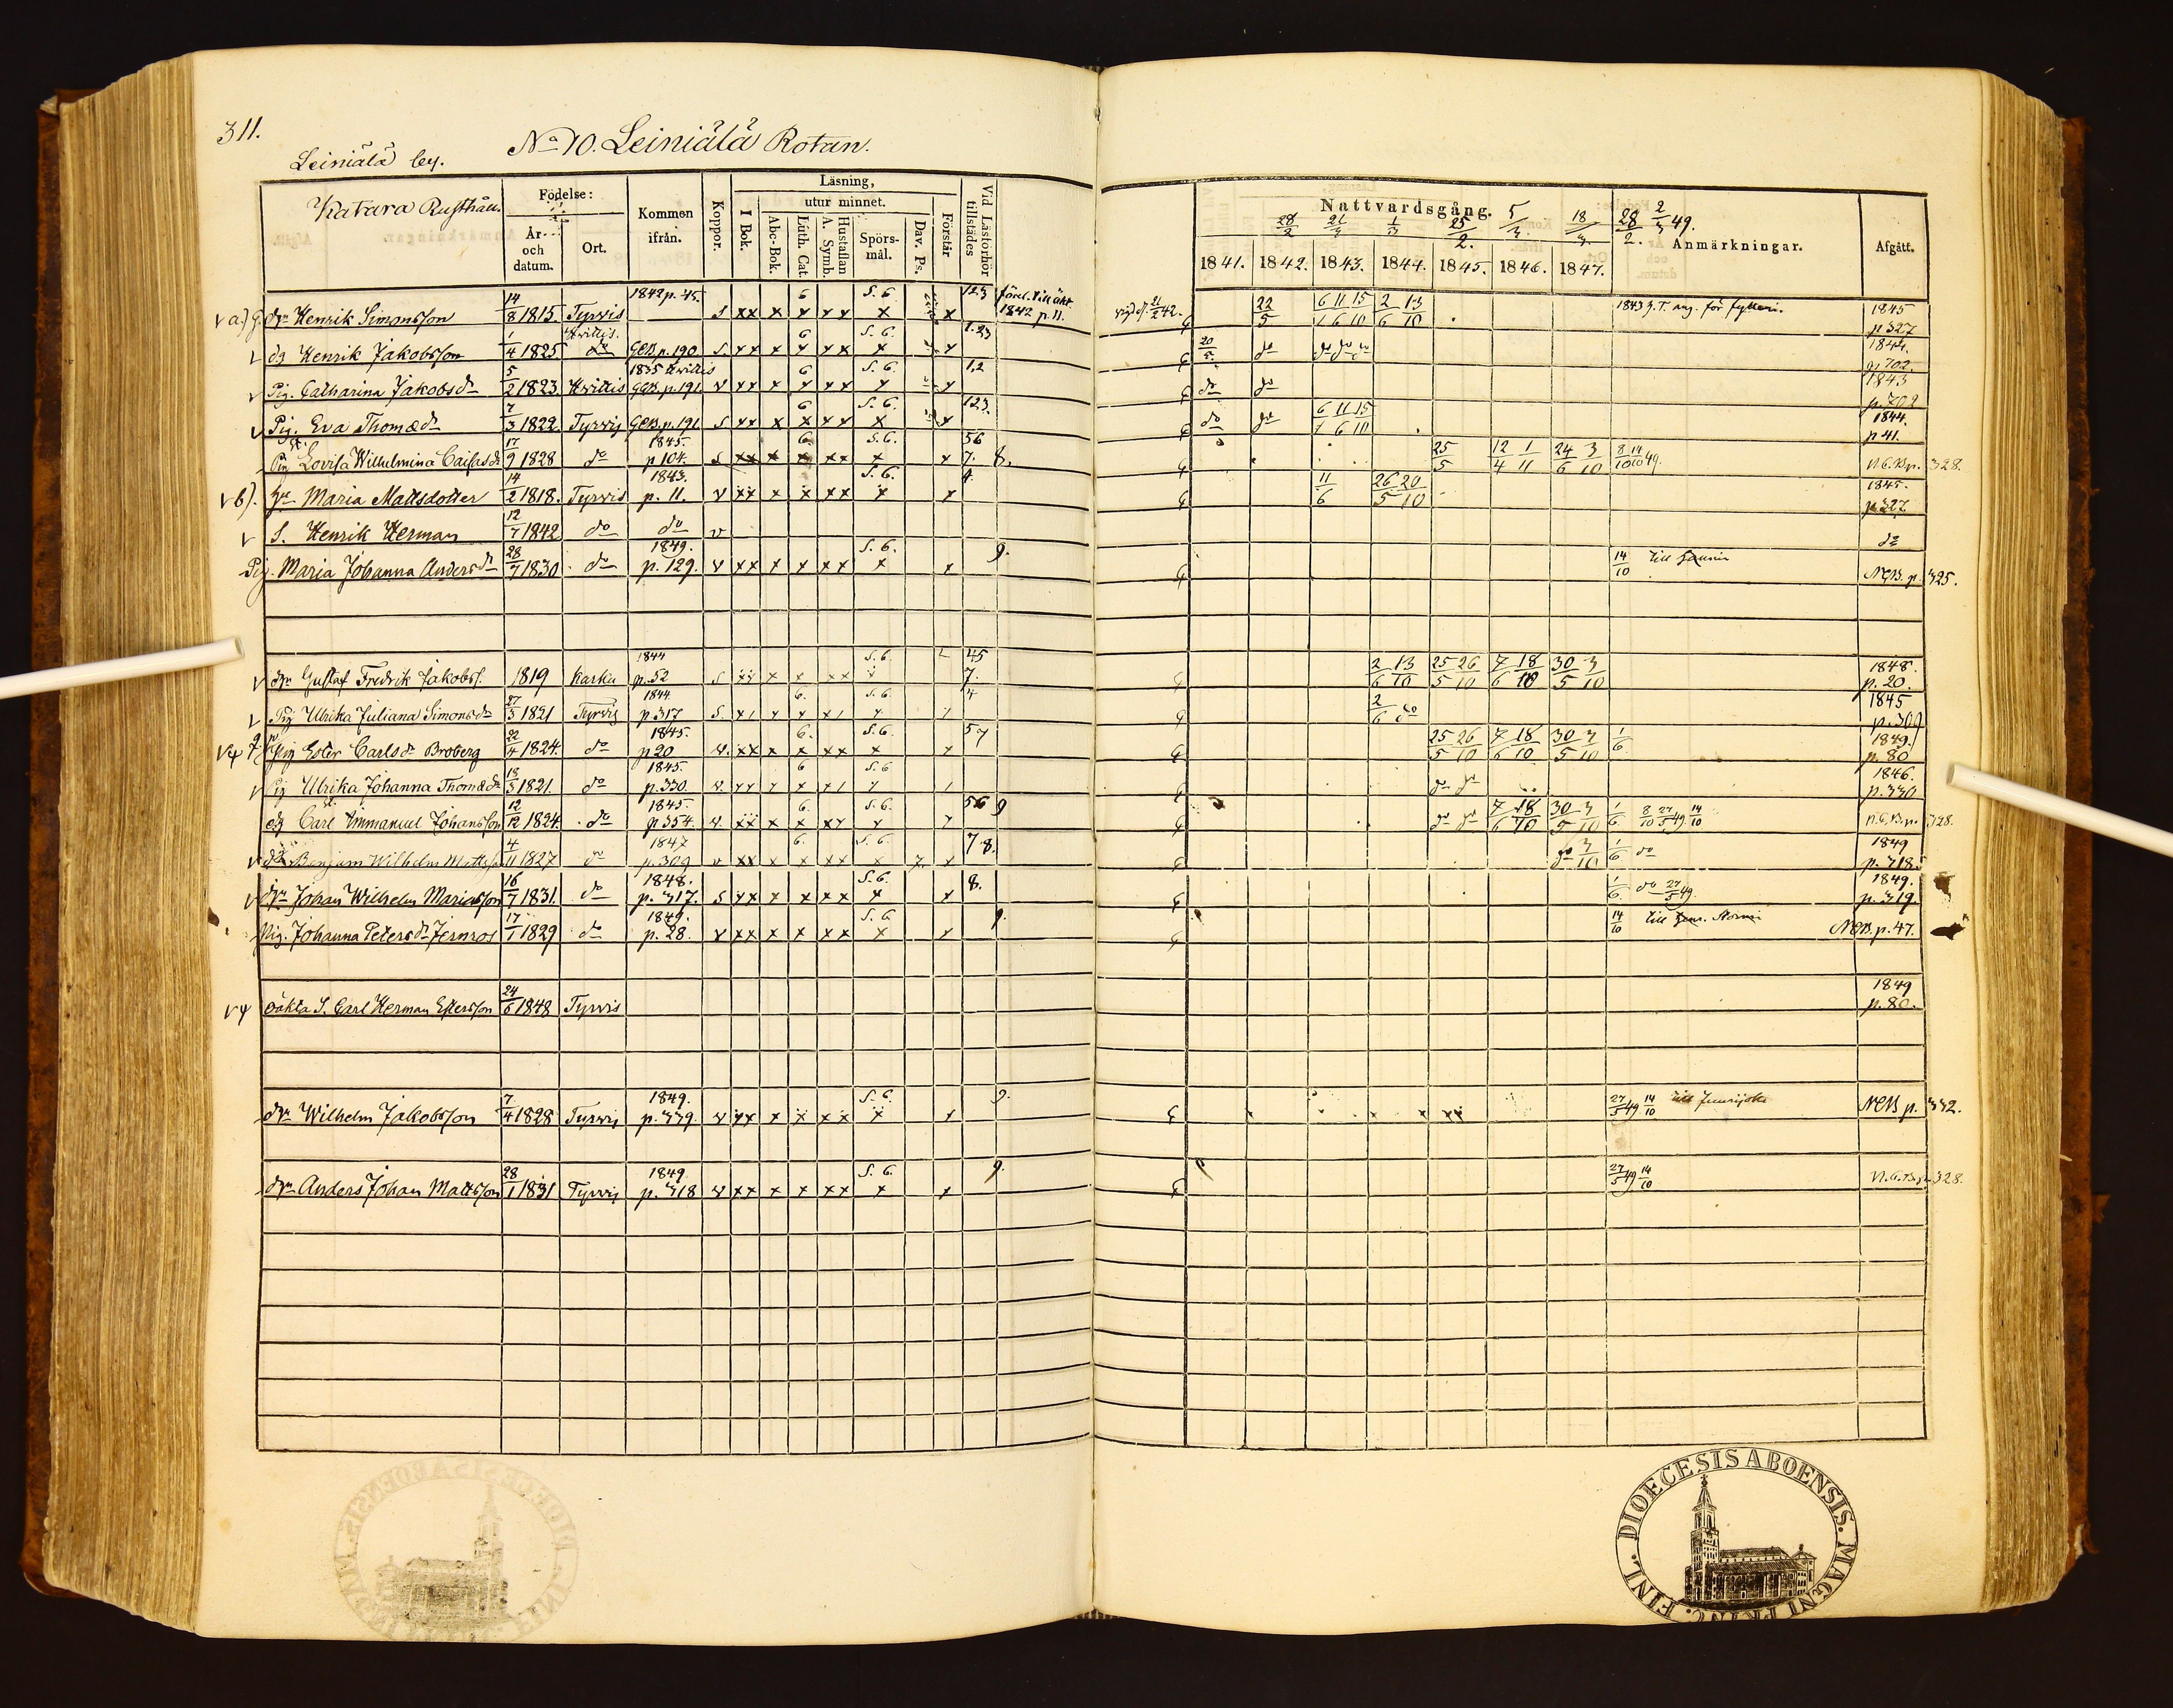 311.
Leiniälä by.
No 10. Leiniälä Rotan.
Katara Rusthåll.
Födelse:
År och datum.
Ort.
Kommen ifrån.
Koppor.
Läsning,
I Bok.
utur minnet.
Abc-Bok.
Luth. Cat.
Hustaflan A. Symb.
Spörsmål.
Dav. Ps.
Förstår
Vid Läsförhör tillstädes
Nattvardsgång.
28/2 21/3 1/3 25/2. 5/3 18/3. 28/2. 2/3 49.
1841. 1842. 1843. 1844. 1845. 1846. 1847.
Anmärkningar.
Afgått.
va) G. dr. Henrik Simonsson 14/8 1815 Tyrvis 1842 p. 45. S xx x 6 x xx S. 6. x 123 förel. till äkt. 1842 p. 11. vigd d. 21/2 42. 22/5 6 11 15 / 7 6 10 2 13 / 6 10 1843 1845 p 327
v dg Henrik Jakobsson 1/4 1825 Kiikkis. do GCB. p. 190. S. xx x 6 x xx S. 6. x 1.23 20/5. do do do do 1844. p 702.
v Pig. Catharina Jakobsdr 5/2 1823 1835 GCB. p. 191. v xx x 6 x xx S. 6. x 1,2 do do 1843 p. 702
v Pig. Eva Thomædr 7/3 1822. Tyrvis GCB. p. 191. S xx x 6 x xx S. 6. x 123. do do 6 11 15 / 7 6 10 1844. p 41.
Pig Lovisa Wilhelmina Caisasdr 17/9 1828 do 1845. p 104. S xx x 6 x xx S. 6. x x 56 7. 8. 25/5 12 1 / 4 11 24 3 / 6 10 8 14 / 10 10 49. N.C.B. p. 328.
v b). Hu. Maria Mattsdotter 14/2 1818. Tyrvis 1843. p. 11. v xx x x xx S. 6. x x 4. 11/6 26 20 / 5 10 1845. p 327
v S. Henrik Herman 12/7 1842 do do v do
Pig. Maria Johanna Andersdr 28/7 1830 do 1849. p. 129. v xx x x xx S. 6. x x 9. 14/10 till NCB. p. 325.
v dr. Gustaf Fredrik Jakobss. 1819 Karku 1844 p. 52 S xx x x xx S. 6. x 45 7. 2 13 / 6 10 25 26 / 5 10 7 18 / 6 10 30 3 / 5 10 1848. p. 20.
v Pig Ulrika Juliana Simonsdr 27/3 1821 Tyrvis 1844. p 317 S. 6. S. 6. 4 2/6 do 1845 p. 309
Pig Ester Carlsdr Broberg 22/4 1824. do 1845. p 20 v. xx x 6. x xx S. 6. x x 57 25 26 / 5 10 7 18 / 6 10 30 3 / 5 10 1/6. 1849. p. 80
v Pig Ulrika Johanna Thomædr 18/3 1821. do 1845. p. 330 v. 6 S. 6 do do 1846. p. 330
dg Carl Immanuel Johansson 12/12 1824. do 1845. p 354. v. xx x 6. x xx S. 6. x 56 9 do do 7 18 / 6 10 30 3 / 5 10 1/6. 8/10 27/5 49. 14/10 N.C.B. p. 328.
v Benjam Wilhelm Mattsson 4/11 1827 do 1847 p. 309 v xx x 6. x xx S. 6. x 7 8. do 3/10 1/6 do 1849 p. 318.
v dr. Johan Wilhelm Mariasson 16/7 1831. do 1848. p. 317. S xx x x xx S. 6. x x 8. 1/6. do 27/5 49. 1849. p. 319.
Pig. Johanna Petersdr Jernros 17/1 1829 do 1849. p. 28. v xx x x xx S. 6 x x 9. 14/10 till NCB. p. 47.
oäkta S. Carl Herman Estersson 24/6 1848 Tyrvis 1849 p. 80.
dr. Wilhelm Jakobsson 7/4 1828 Tyrvis 1849. p. 339. v xx x x xx S. 6. x x 9. 27/5 49. 14/10 till NCB p. 332.
dr. Anders Johan Mattsson 28/1 1831 Tyrvis 1849. p. 318 v xx x x xx S. 6. x x 9. 27/5 49 14/10 N.C.B. p. 328.
DIOECESIS ABOENSIS. MAGNI PRINC. FINL.